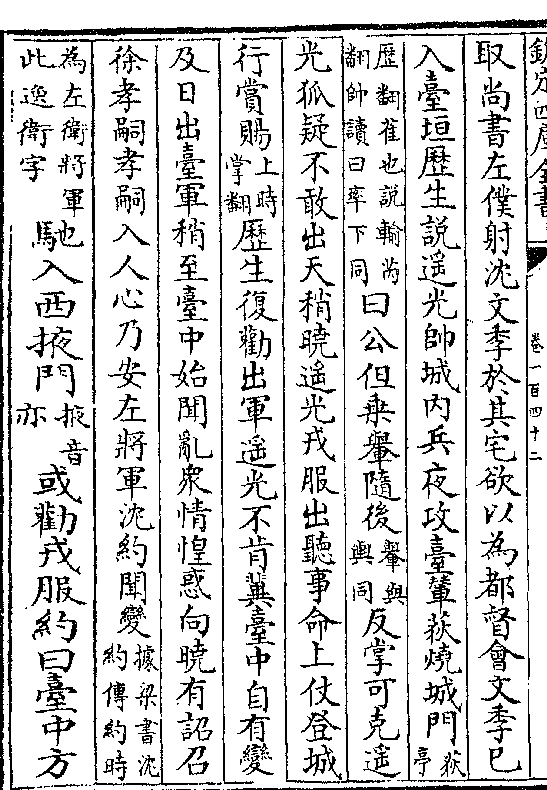 欽定四庫全書
卷一百四十二
取尚書左僕射沈文季於其宅欲以為都督會文季已
入臺垣歷生說遥光帥城内兵夜攻臺輦荻燒城門荻亭
歷翻雈也說輸芮翻帥讀曰率下同曰公但乗轝隨後轝與輿同反掌可克遥
光狐疑不敢出天稍曉遥光戎服出聽事命上仗登城
行賞賜上時掌翻歷生復勸出軍遥光不肯冀臺中自有變
及日出臺軍稍至臺中始聞亂衆情惶惑向曉有詔召
徐孝嗣孝嗣入人心乃安左將軍沈約聞變據梁書沈約傳約時
為左衛將軍此逸衛字馳入西掖門掖音亦或勸戎服約曰臺中方